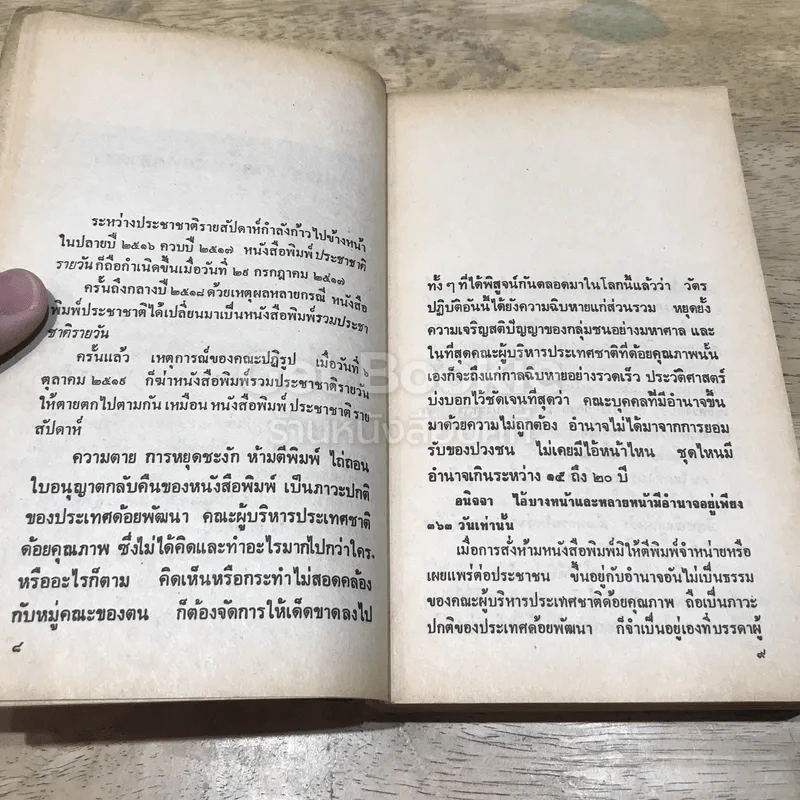 ระหว่างประชาชาติรายสัปดาห์กำลังก้าวไปข้างหน้า
ในปลายปี ๒๕๑๖ ควบปี ๒๕๑๗ หนังสือพิมพ์ ประชาชาติ
รายวัน ก็ถือกำเนิดขึ้นเมื่อวันที่ ๒๙ กรกฎาคม ๒๕๑๗
ครั้นถึงกลางปี ๒๕๑๘ ด้วยเหตุผลหลายกรณี หนังสือ
พิมพ์ประชาชาติได้เปลี่ยนมาเป็นหนังสือพิมพ์รวมประชา
ชาติรายวัน
ครั้นแล้ว เหตุการณ์ของคณะปฏิรูป เมื่อวันที่ ๖
ตุลาคม ๒๕๑๙ ก็ฆ่าหนังสือพิมพ์รวมประชาชาติรายวัน
ให้ตายตกไปตามกัน เหมือน หนังสือพิมพ์ ประชาชาติ ราย
สัปดาห์
ความตาย การหยุดชะงัก ห้ามตีพิมพ์ ไถ่ถอน
ใบอนุญาตกลับคืนของหนังสือพิมพ์ เป็นภาวะปกติ
ของประเทศด้อยพัฒนา คณะผู้บริหารประเทศชาติ
ด้อยคุณภาพ ซึ่งไม่ได้คิดและทำอะไรมากไปกว่าใคร.
หรืออะไรก็ตาม คิดเห็นหรือกระทำไม่สอดคล้อง
กับหมู่คณะของตน ก็ต้องจัดการให้เด็ดขาดลงไป
๘
ทั้ง ๆ ที่ได้พิสูจน์กันตลอดมาในโลกนี้แล้วว่า วัตร
ปฏิบัติอันนี้ได้ยังความฉิบหายแก่ส่วนรวม หยุดยั้ง
ความเจริญสติปัญญาของกลุ่มชนอย่างมหาศาล และ
ในที่สุดคณะผู้บริหารประเทศชาติที่ด้อยคุณภาพนั้น
เองก็จะถึงแก่กาลฉิบหายอย่างรวดเร็ว ประวัติศาสตร์
บ่งบอกไว้ชัดเจนที่สุดว่า คณะบุคคลที่มีอำนาจขึ้น
มาด้วยความไม่ถูกต้อง อำนาจไม่ได้มาจากการยอม
รับของปวงชน ไม่เคยมีไอ้หน้าไหน ชุดไหนมี
อำนาจเกินระหว่าง ๑๕ ถึง ๒๐ ปี
อนิจจา ไอ้บางหน้าและหลายหน้ามีอำนาจอยู่เพียง
๓๖๓ วันเท่านั้น
เมื่อการสั่งห้ามหนังสือพิมพ์มิให้ตีพิมพ์จำหน่ายหรือ
เผยแพร่ต่อประชาชน ขึ้นอยู่กับอำนาจอันไม่เป็นธรรม
ของคณะผู้บริหารประเทศชาติด้อยคุณภาพ ถือเป็นภาวะ
ปกติของประเทศด้อยพัฒนา ก็จำเป็นอยู่เองที่บรรดาผู้
๙